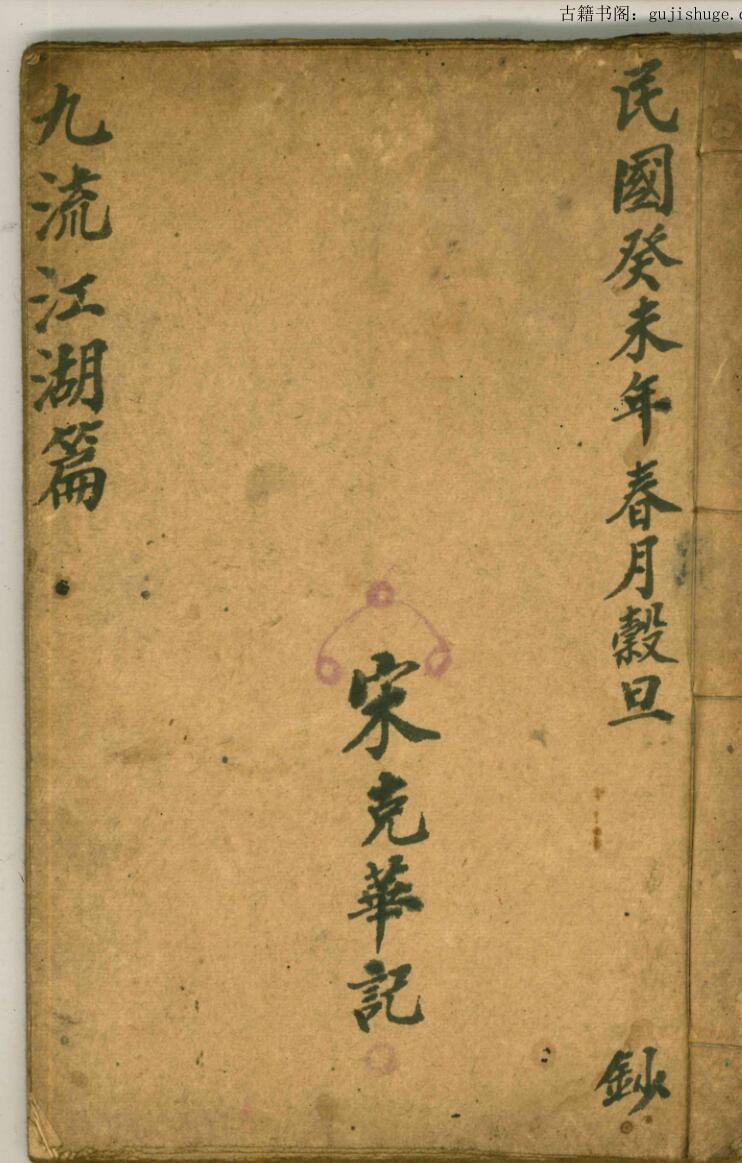 古籍书阁：gujishuge.c
民國癸未年春月穀旦
鈔
宋克華記
九流江湖篇